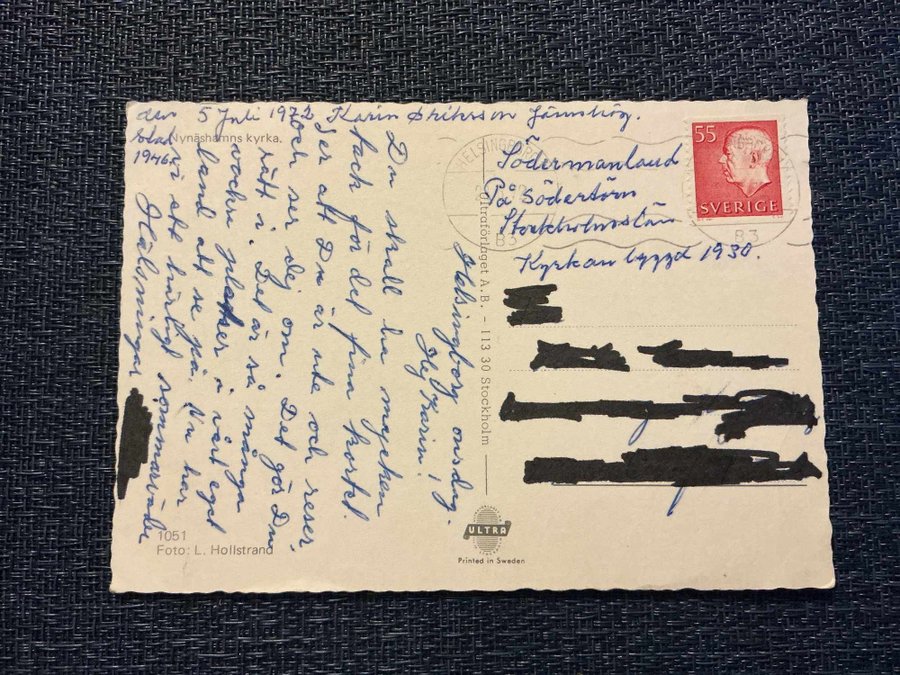 den 5 Juli 1972 Karin
Nynäshamns kyrka.
stad
1946.
Södermanland
På Södertörn
Stockholmslän
Kyrkan byggd 1930.
55
SVERIGE
HELSINGBORG
83
83
Helsingborg onsdag.
Hej Karin!
Du skall ha mycken
tack för det fina kortet.
Jag ser att Du är ute och reser
och ser dej om. Det gör Du
rätt i. Det är så många
vackra platser i vårt eget
land att se på. Nu har
vi ett härligt sommarväder
Hälsningar
Ultraförlaget A.B. - 113 30 Stockholm
1051
Foto: L. Hollstrand
ULTRA
Printed in Sweden